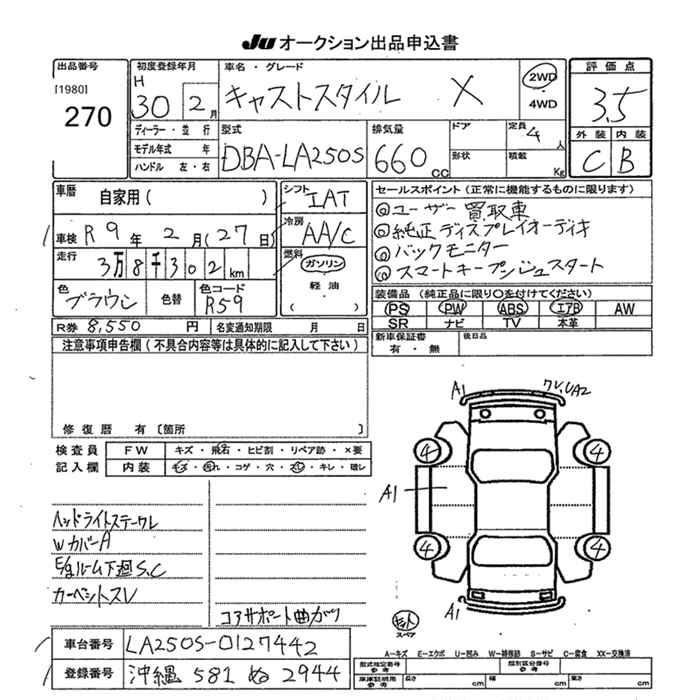 JU オークション出品申込書
出品番号
[1980]
270
初度登録年月
H 30 2月
車名・グレード
キャストスタイル X
2WD
・
4WD
評価点
3.5
外装 内装
C B
ディーラー・並行
モデル年式 年
ハンドル 左・右
型式
DBA-LA250S
排気量
660 cc
ドア
形状
定員 4 人
積載 Kg
車歴 自家用( )
車検 R9年 2月(27日)
走行 3万8千302km
色 ブラウン 色替
色コード R59
シフト IAT
冷房 AA/C
燃料 ガソリン
・
軽油
( )
セールスポイント(正常に機能するものに限ります)
◎ユーザー買取車
◎純正ディスプレイオーディオ
◎バックモニター
◎スマートキープッシュスタート
装備品(純正品に限り○を付けてください)
PS PW ABS エアB AW
SR ナビ TV 本革
新車保証書
有・無
後日品
R券 8,550円 名変通知期限 月 日
注意事項申告欄(不具合内容等は具体的に記入して下さい)
修復歴 有〔箇所 〕
検査員
記入欄
FW キズ・飛石・ヒビ割・リペア跡・×要
内装 キズ・汚れ・コゲ・穴・・キレ・破レ
ヘッドライトステーワレ
WカバーA
E/gルーム下廻S.C
カーペットスレ
コアサポート曲がり
A1
ワレ,UA2
4
4
A1
4
4
A1
スペア
車台番号 LA250S-0127442
登録番号 沖縄 581 ぬ 2944
A…キズ E…エクボ U…凹み W…補修跡 S…サビ C…腐食 XX…交換済
型式指定番号
参考
類別区分番号
参考
車庫証明用
参考
長さ cm 幅 cm 高さ cm